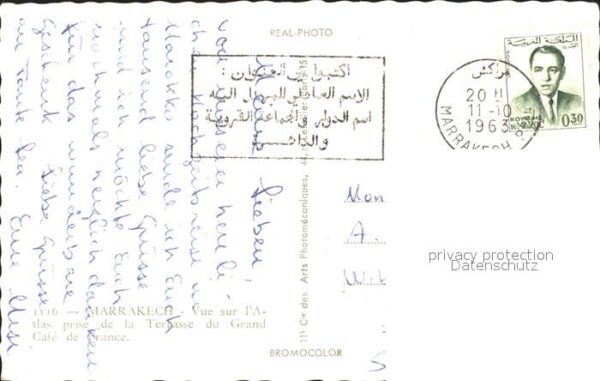 REAL-PHOTO
Meine Lieben,
von unserer herrli-
chen Hochzeitsreise
Marokko sende ich Euch
tausend liebe Grüsse
und ich möchte Euch
nochmals herzlich danken
für das wunderbare
Geschenk. Liebe Grüsse
an Tante Lea. Eure
1116 — MARRAKECH - Vue sur l'A-
tlas prise de la Terrasse du Grand
Café de France.
11, Cie des Arts Photomécaniques, 44,
BROMOCOLOR
اكتبوا في العنوان :
الاسم العائلي للمرسل اليه
اسم الدوار والجماعة القروية
والدائرة
مراكش
20 H
11-10
1963
MARRAKECH
المملكة المغربية
ROYAUME
DU MAROC
0,30
Mon
A.
privacy protection
Datenschutz